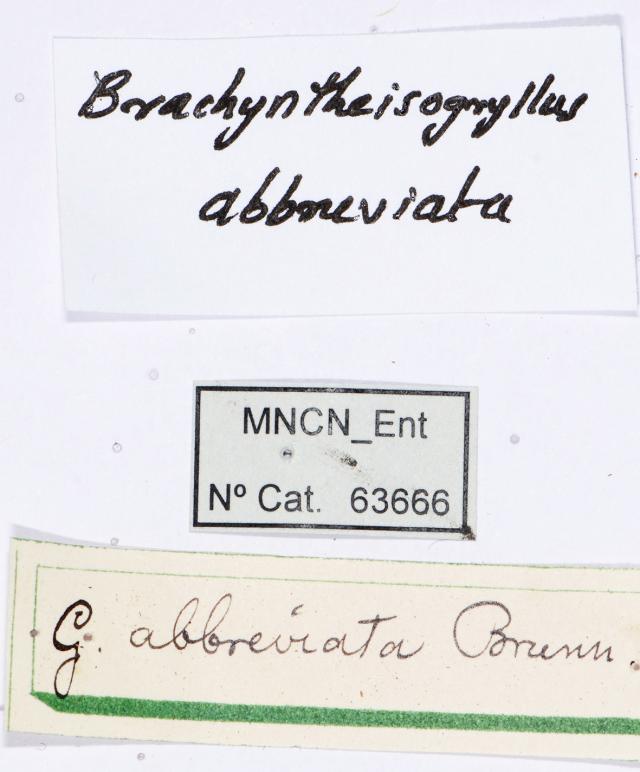 Brachyntheisogryllus
abbreviata
MNCN_Ent
Nº Cat. 63666
G. abbreviata Brunn.